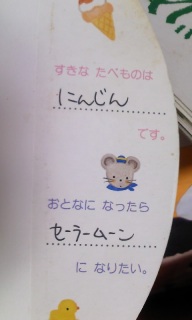 すきな たべものは
にんじん
です。
おとなに なったら
セーラームーン
に なりたい。